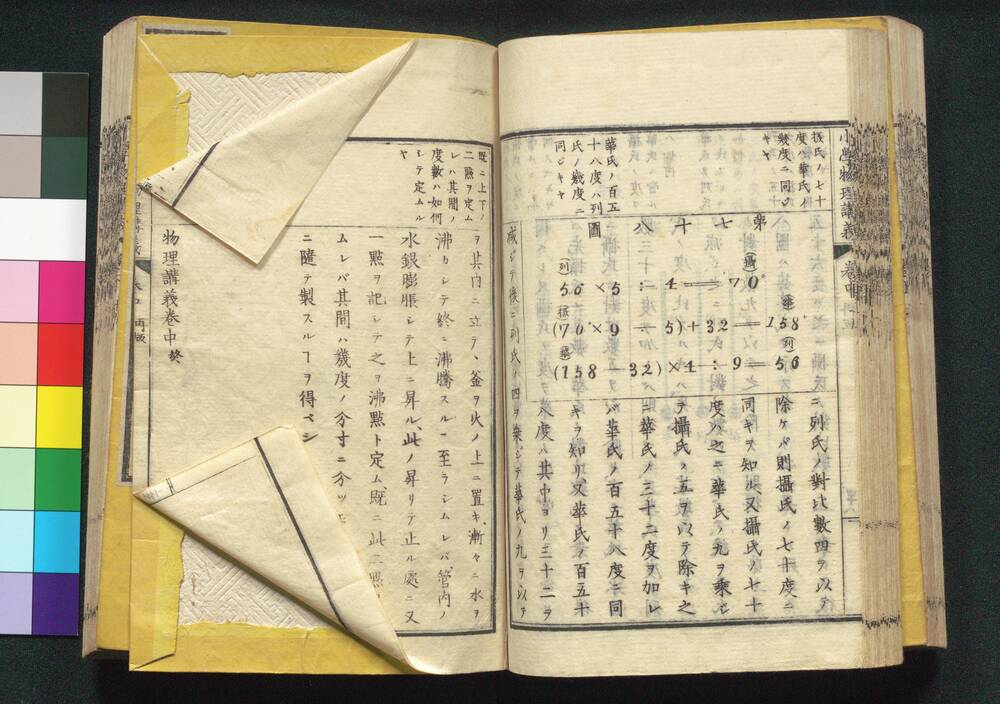 小學物理講義 卷中
攝氏ノ七十
度ハ華氏ノ
幾度ニ同ジ
キヤ
華氏ノ百五
十八度ハ列
氏ノ幾度ニ
同ジキヤ
第七十八圖
(列)56×5÷4=70°(攝)
(攝)(70°×9÷5)+32=158°(華)
(華)(158-32)×4÷9=56(列)
ニ列氏ノ對比數四ヲ以テ
除ケバ則攝氏ノ七十度ニ
同キヲ知ル、又攝氏ノ七十
度ハ之ニ華氏ノ九ヲ乘ジ
テ攝氏ノ五ヲ以テ除キ之
ニ華氏ノ三十二度ヲ加レ
バ華氏ノ百五十八度ニ同
キヲ知リ、又華氏ノ百五十
八度ハ其中ヨリ三十二ヲ
減ジテ後ニ列氏ノ四ヲ乘ジテ華氏ノ九ヲ以テ
既ニ上下ノ
二點ヲ定ム
レハ其間ノ
度數ハ如何
シテ定ムル
ヤ
ヲ其内ニ立テ、釜ヲ火ノ上ニ置キ、漸々ニ水ヲ
沸カシテ終ニ沸騰スルニ至ラシムレバ、管内ノ
水銀膨脹シテ上ニ昇ル、此ノ昇リテ止ル處ニ又
一點ヲ記シテ之ヲ沸點ト定ム、既ニ此二點
ムレバ其間ハ幾度ノ分寸ニ分ツ
ニ隨テ製スルヿヲ得ベシ
物理講義卷中終